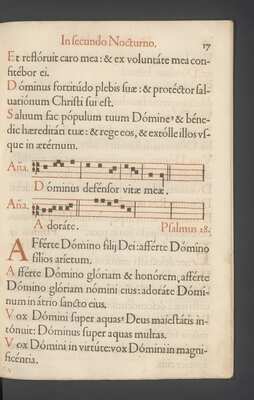 In secundo Nocturno. 17
Et reflóruit caro mea: & ex voluntáte mea con-
fitébor ei.
Dóminus fortitúdo plebis suæ: & protéctor sal-
uatiónum Christi sui est.
Saluum fac pópulum tuum Dómine, & béne-
dic hæreditáti tuæ: & rege eos, & extólle illos vs-
que in ætérnum.
Aña.
Dóminus defénsor vitæ meæ.
Aña.
Adoráte. Psalmus 28.
AFférte Dómino filij Dei: afférte Dómino
fílios aríetum.
Afférte Dómino glóriam & honórem, afférte
Dómino glóriam nómini eius: adoráte Dómi-
num in átrio sancto eius.
Vox Dómini super aquas, Deus maiestátis in-
tónuit: Dóminus super aquas multas.
Vox Dómini in virtúte: vox Dómini in magni-
ficéntia.